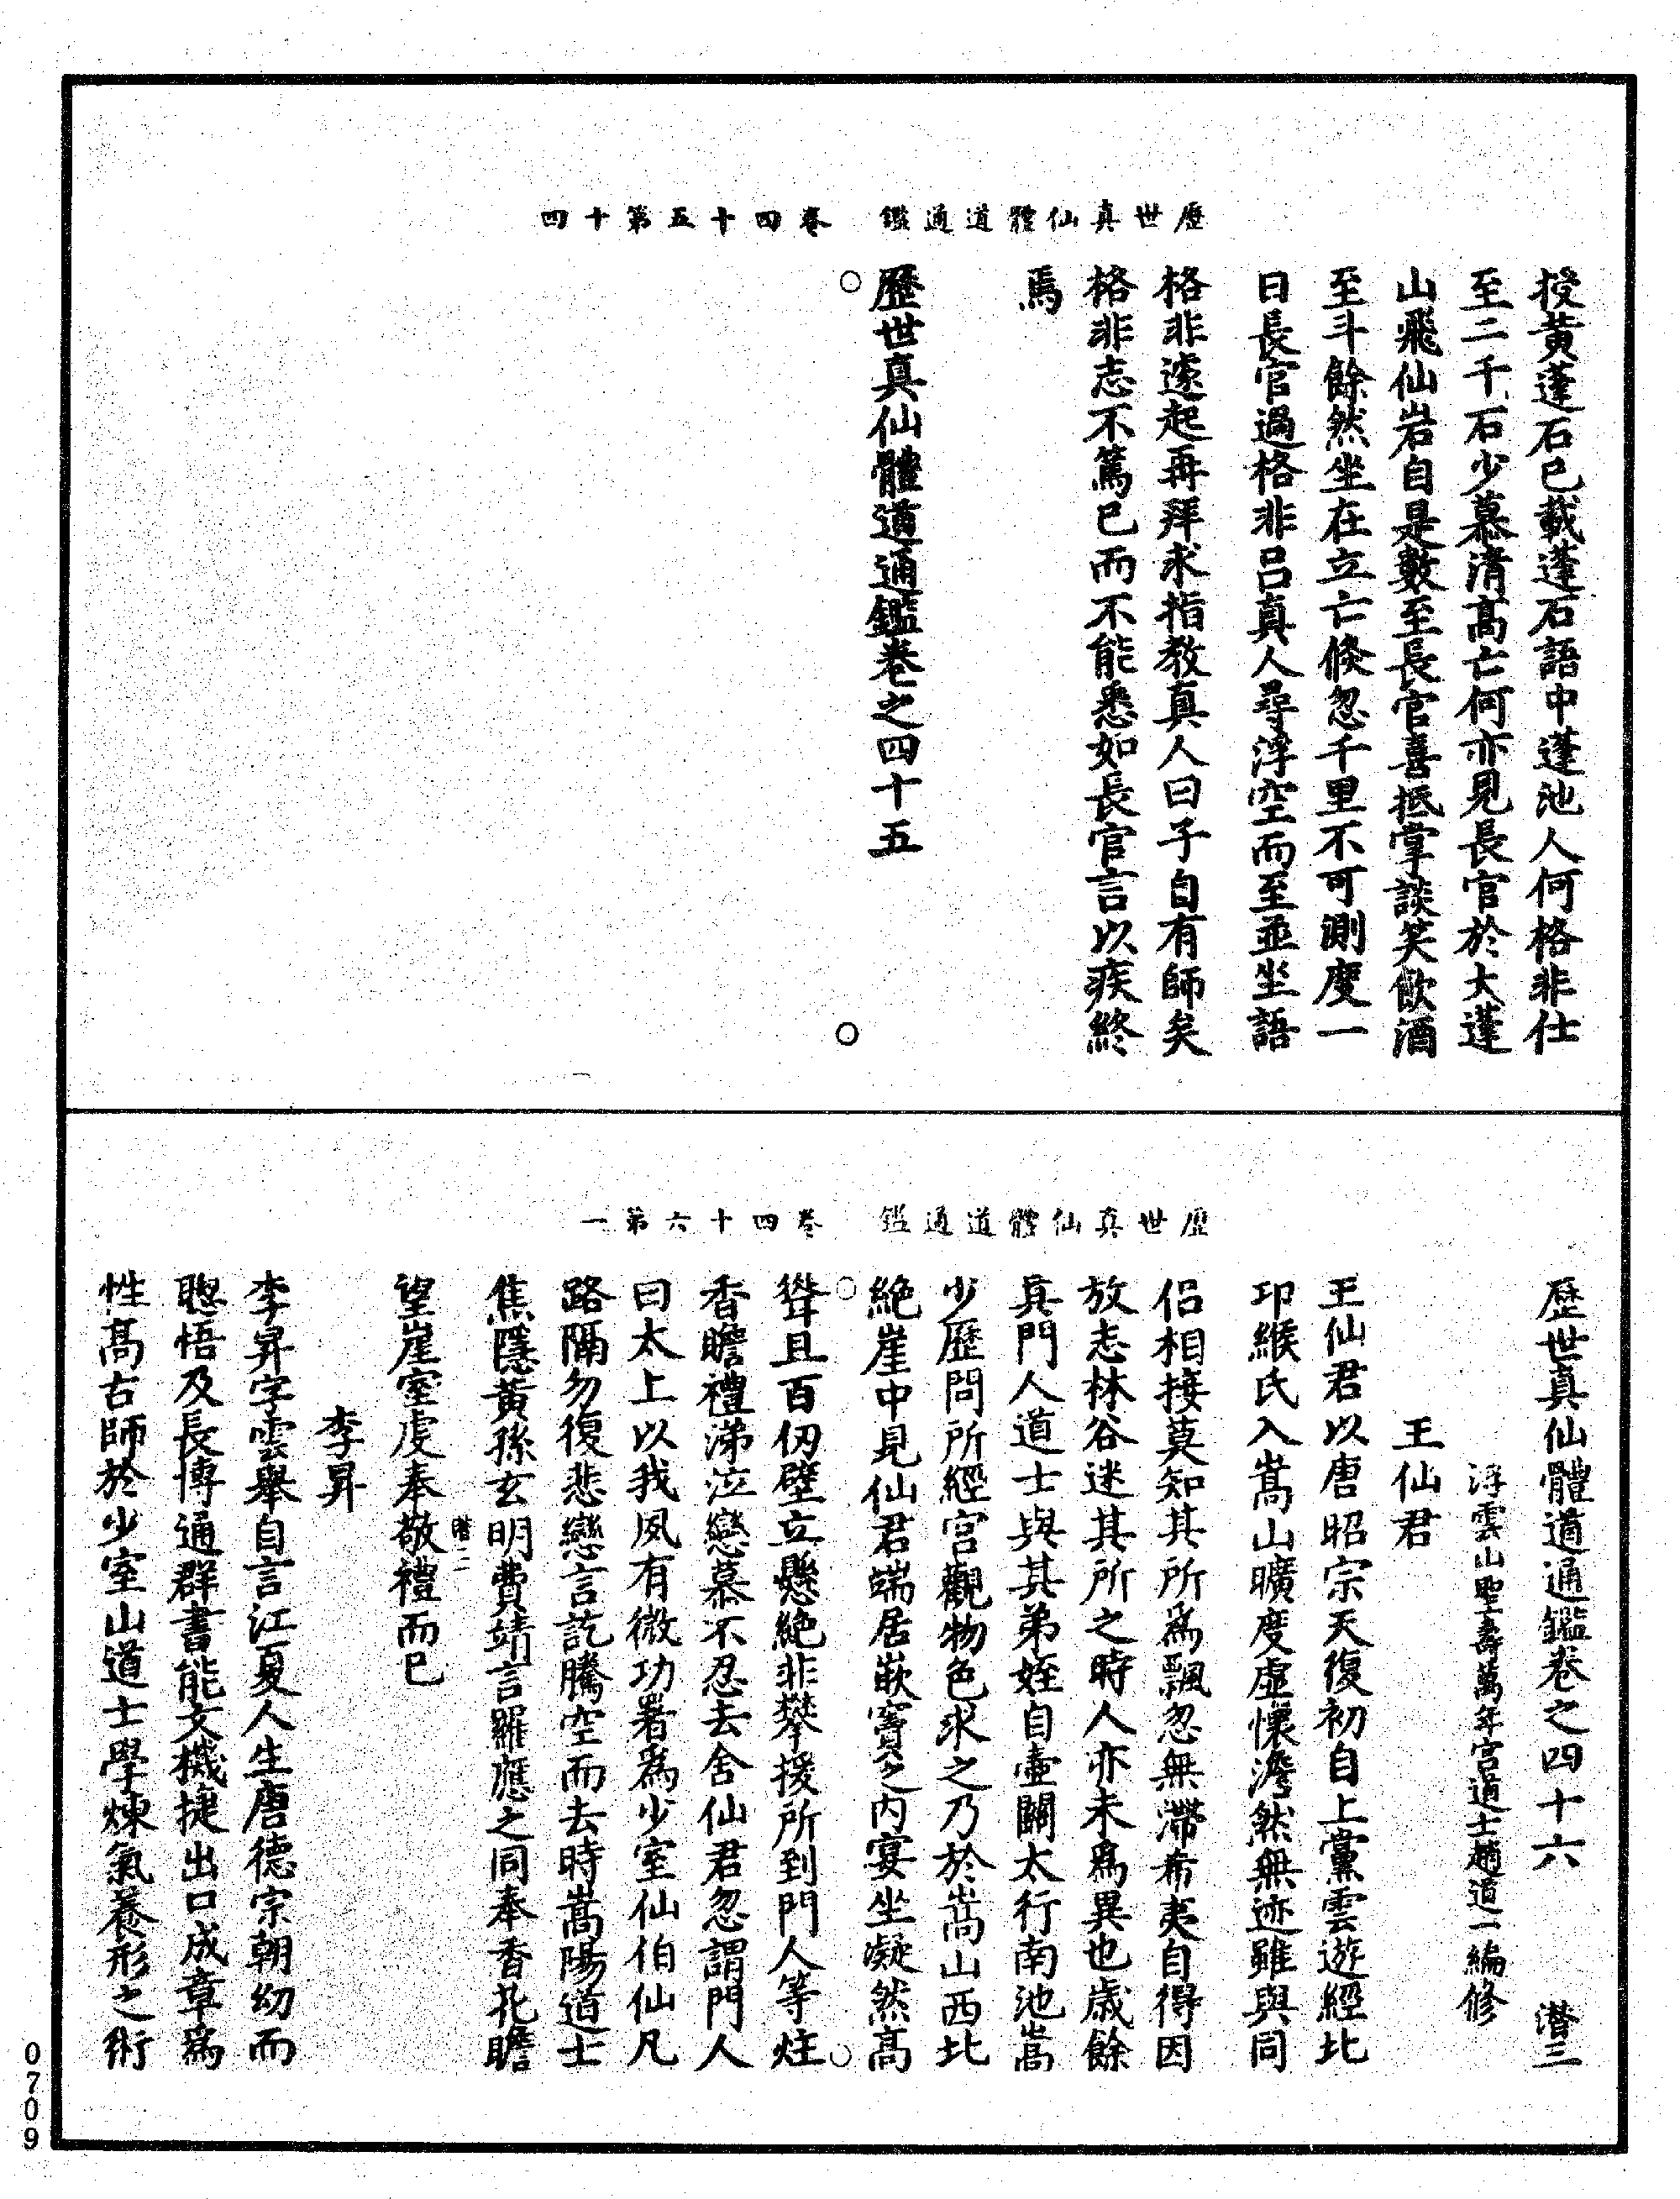 歷世真仙體道通鑑　卷四十五第十四
授黃蓬石已載蓬石語中蓬池人何格非仕
至二千石少慕清高亡何亦見長官於大蓬
山飛仙岩自是數至長官喜抵掌談笑飲酒
至斗餘然坐在立亡倏忽千里不可測度一
日長官過格非呂真人尋浮空而至並坐語
格非遽起再拜求指教真人曰子自有師矣
格非志不篤已而不能悉如長官言以疾終
焉
歷世真仙體道通鑑卷之四十五
歷世真仙體道通鑑　卷四十六第一
歷世真仙體道通鑑卷之四十六　潛三
浮雲山聖壽萬年宮道士趙道一編修
王仙君
王仙君以唐昭宗天復初自上黨雲遊經北
邙緱氏入嵩山曠度虛懷澹然無迹雖與同
侶相接莫知其所為飄忽無滯希夷自得因
放志林谷迷其所之時人亦未為異也歲餘
真門人道士與其弟姪自壺關太行南池嵩
少歷問所經宮觀物色求之乃於嵩山西北
絕崖中見仙君端居嵌竇之內宴坐凝然高
聳且百仞壁立懸絕非攀援所到門人等炷
香瞻禮涕泣戀慕不忍去舍仙君忽謂門人
曰太上以我夙有微功署為少室仙伯仙凡
路隔勿復悲戀言訖騰空而去時嵩陽道士
焦隱黃孫玄明費靖言羅應之同奉香花瞻
潛二
望崖室虔奉敬禮而已
李昇
李昇字雲舉自言江夏人生唐德宗朝幼而
聰悟及長博通群書能文機捷出口成章為
性高古師於少室山道士學煉氣養形之術
0709